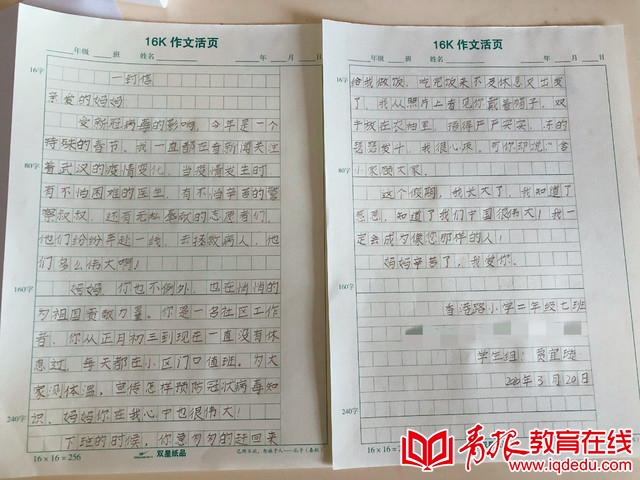 16K 作文活页
年级 班 姓名 年 月 日
16字
一封信
亲爱的妈妈:
受新冠病毒的影响,今年是一个
特殊的春节。我一直都在看新闻关注
着武汉的疫情变化。当疫情发生时,
有不怕困难的医生,有不怕辛苦的警
80字
察叔叔,还有无私奉献的志愿者们,
他们纷纷奔赴一线,去拯救病人,他
们多么伟大啊!
妈妈,你也不例外,也在悄悄的
160字
为祖国贡献力量。你是一名社区工作
者,你从正月初三到现在一直没有休
息过,每天都在小区门口值班。为大
家测体温,宣传怎样预防冠状病毒知
识,妈妈你在我心中也很伟大!
240字
下班的时候,你要匆匆的赶回来
16×16=256
双星纸品
16K 作文活页
年级 班 姓名 年 月 日
16字
给我做饭,吃完饭来不及休息又出发
了,我从照片上看见你戴着帽子,双
手放在衣袖里,捂得严严实实,冻的
80字
瑟瑟发斗,我很心疼。可你却说:舍
小家顾大家。
这个假期,我长大了,我知道了
感恩,知道了我们中国很伟大!我一
定会成为像您那样的人!
妈妈辛苦了,我爱你。
160字
香港路小学二年级七班
学生组:
2020年3月20日
240字
16×16=
青报教育在线
www.iqdedu.com